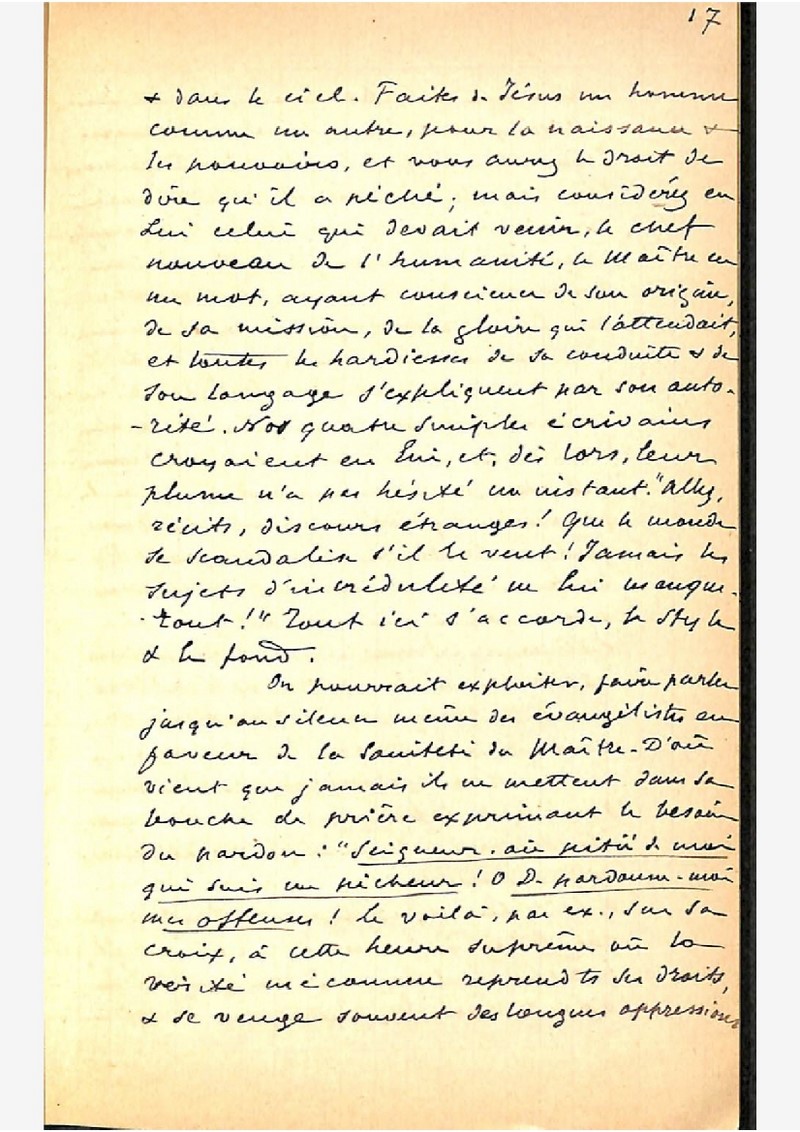 17
& dans le ciel. Faites de Jésus un homme
comme un autre, pour la naissance &
les pouvoirs, et vous aurez le droit de
dire qu'il a péché; mais considérez en
Lui celui qui devait venir, le chef
nouveau de l'humanité, le Maître en
un mot, ayant conscience de son origine,
de sa mission, de la gloire qui l'attendait,
et toutes les hardiesses de sa conduite & de
son langage s'expliquent par son auto-
-rité. Nos quatre simples écrivains
croyaient en Lui, et, dès lors, leur
plume n'a pas hésité un instant. "Allez,
récits, discours étranges! Que le monde
se scandalise s'il le veut! Jamais les
sujets d'incrédulité ne lui manque-
-ront!" Tout ici s'accorde, le style
& le fond.
On pourrait exploiter, faire parler
jusqu'au silence même des évangélistes en
faveur de la Sainteté du Maître - D'où
vient que jamais ils ne mettent dans sa
bouche de prière exprimant le besoin
du pardon: "Seigneur, aie pitié de moi
qui suis un pécheur! O D. pardonne-moi
mes offenses! Le voilà, par ex., sur sa
croix, à cette heure suprême où la
vérité méconnue reprend ts ses droits,
& se venge souvent des longues oppressions